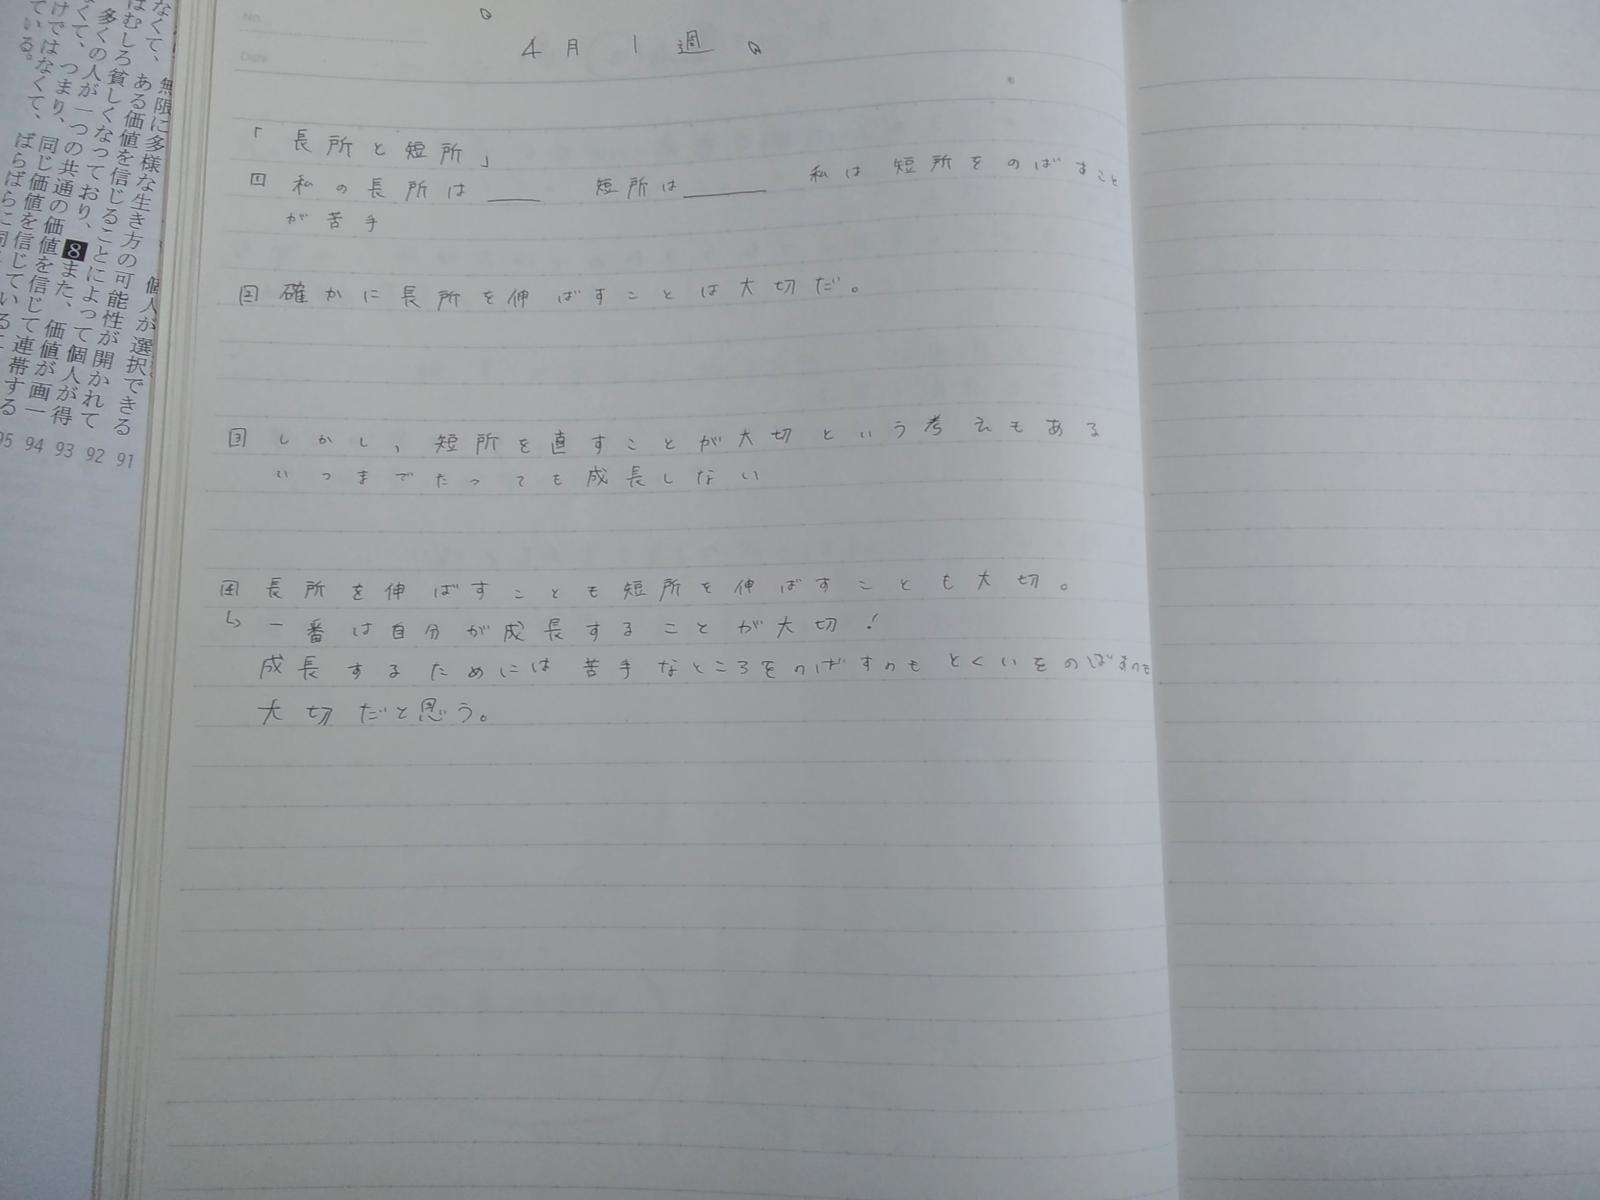 No.
Date
4月 1週
「長所と短所」
1 私の長所は___ 短所は____ 私は短所をのばすこと
が苦手
2 確かに長所を伸ばすことは大切だ。
3 しかし、短所を直すことが大切という考えもある
いつまでたっても成長しない
4 長所を伸ばすことも短所を伸ばすことも大切。
↳ 一番は自分が成長することが大切!
成長するためには苦手なところをのばすのもとくいをのばすのも
大切だと思う。
個人が選択できる
無限に多様な生き方の可能性が開かれて
なくて、ある価値を信じることによって個人が得
はむしろ貧しくなっており、8また、価値が画一
多くの人が一つの共通の価値を信じて連帯する
なくて、つまり、同じ価値を信じている
けではなくて、ばらばらに同
ている。
91
92
93
94
95